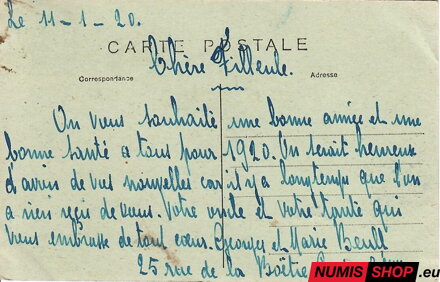 Le 11-1-20.
CARTE POSTALE
Correspondance Adresse
Chère Filleule.
On vous souhaite une bonne année et une
bonne santé a tous pour 1920. On serait heureux
d'avoir de vos nouvelles car il y a longtemps que l'on
a rien reçu de vous. Votre oncle et votre tante qui
vous embrasse de tout cœur. Georges et Marie
25 rue de la Boëtie
NUMIS SHOP.eu